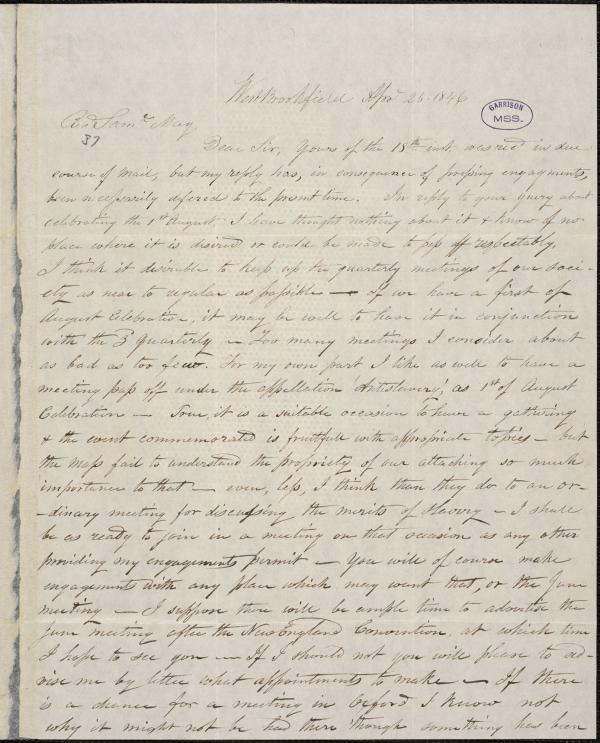 West Brookfield Apr. 26. 1846
GARRISON
MSS.
Rev Saml May
37
Dear Sir, Yours of the 18th inst was recd in due
course of mail, but my reply has, in consequence of pressing engagments,
been necessarily defered to the present time. In reply to your query about
celebrating the 1st August I have thought nothing about it & know of no
place where it is disired or could be made to pass off respectably.
I think it desirable to keep up the quarterly meetings of our soci-
ety as near to regular as possible — If we have a first of
August Celebration, it may be well to have it in conjunction
with the 3 quarterly — Too many meetings I consider about
as bad as too few. For my own part I like as well to have a
meeting pass off under the appellation Antislavery, as 1st of August
Celebration — True, it is a suitable occasion to have a gathering
& the event commemorated is fruitfull with appropriate topics — but
the mass fail to understand the propriety of our attaching so much
importance to that — even, less, I think than they do to an or-
-dinary meeting for discussing the merits of Slavery — I shall
be as ready to join in a meeting on that occasion as any other
providing my engagements permit — You will of course make
engagements with any place which may want that, or the June
meeting — I suppose there will be ample time to advertise the
June meeting after the New England Convention, at which time
I hope to see you — If I should not you will please to ad-
vise me by letter what appointments to make — If there
is a chance for a meeting in Oxford I know not
why it might not be had there 'though something has been